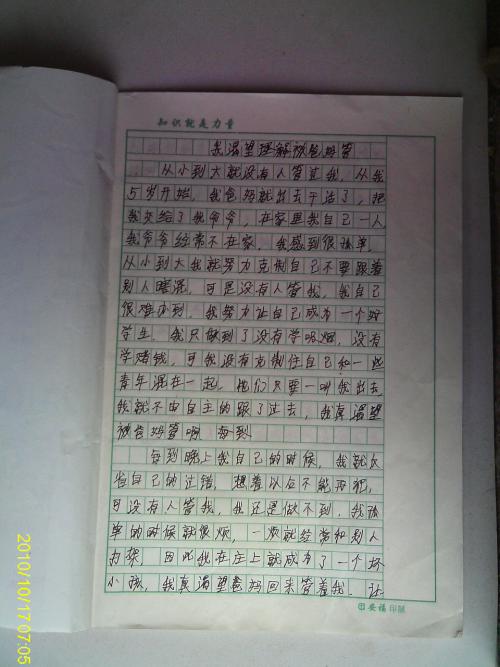 知识就是力量
我渴望理解被爸妈管
从小到大就没有人管过我，从我
5岁开始，我爸妈就出去干活了，把
我交给了我爷爷，在家里我自己一人，
我爷爷经常不在家，我感到很孤单，
从小到大我就努力克制自己不要跟着
别人瞎混，可是没有人管我，我自己
很难办到，我努力让自己成为一个好
学生，我只做到了没有学吸烟，没有
学赌钱，可我没有克制住自己和一些
青年混在一起，他们只要一叫我出去，
我就不由自主的跟了过去，我真渴望
被爸妈管啊 每到
每到晚上我自己的时候，我就
当自己的过错，想着以后不能再犯，
可没有人管我，我还是做不到，我孤
单的时候就很烦，一烦就经常和别人
打架，因此我在庄上就成为了一个坏
小孩，我真渴望爸妈回来管着我，让
安福印刷
2010/10/17 07:05